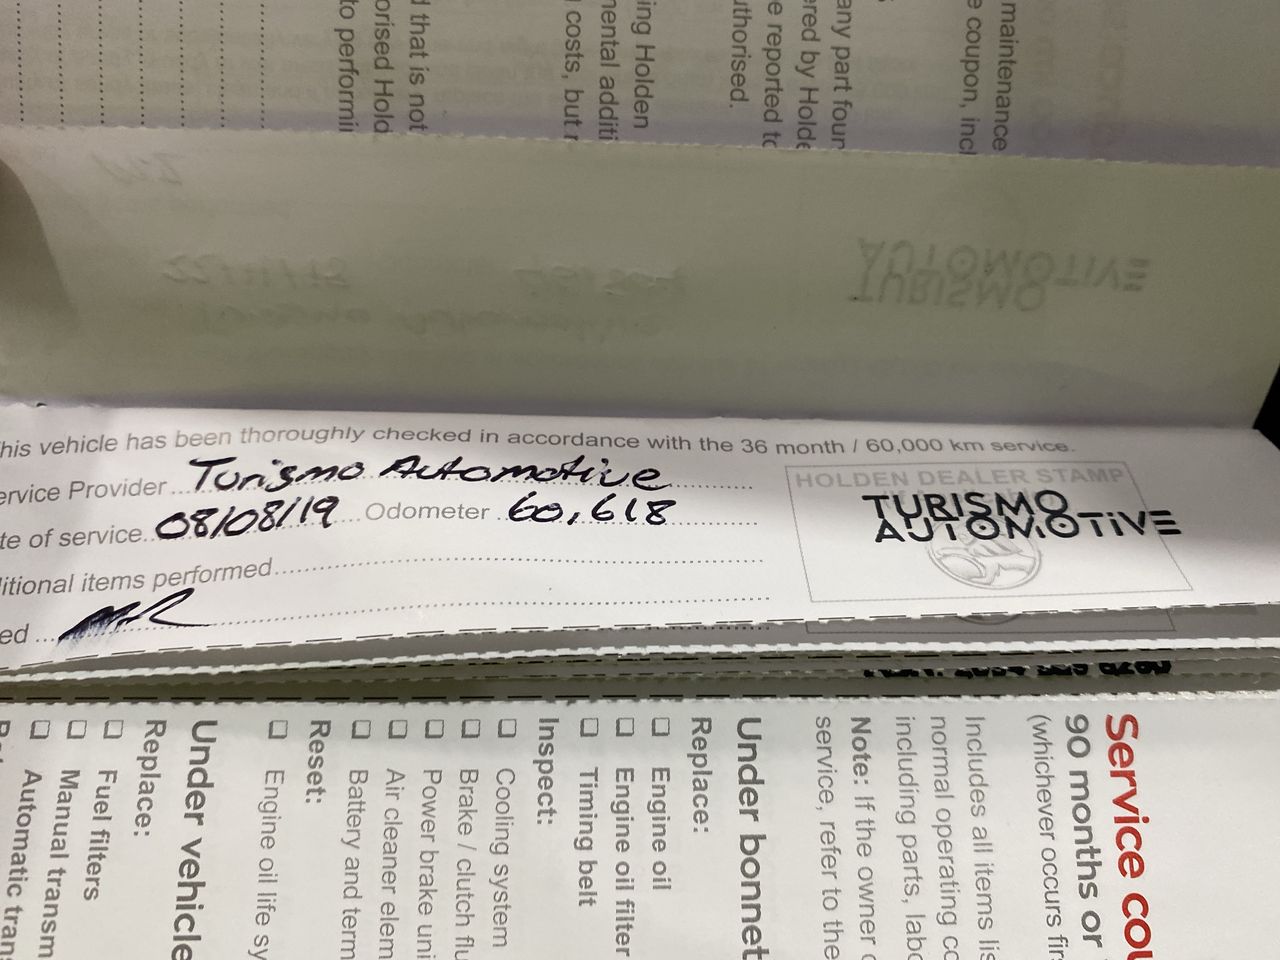 maintenance
e coupon, incl
any part foun
ered by Holde
e reported to
uthorised.
ing Holden
nental additi
costs, but
d that is not
orised Hold
to performi
his vehicle has been thoroughly checked in accordance with the 36 month / 60,000 km service.
ervice Provider Turismo Automotive
te of service 08/08/19 Odometer 60,618
litional items performed
ed
HOLDEN DEALER STAMP
TURISMO
AUTOMOTIVE
Service cou
90 months or
(whichever occurs firs
Includes all items lis
normal operating co
including parts, labo
Note: If the owner
service, refer to the
Under bonnet
Replace:
☐ Engine oil
☐ Engine oil filter
☐ Timing belt
Inspect:
☐ Cooling system
☐ Brake / clutch flu
☐ Power brake uni
☐ Air cleaner elem
☐ Battery and term
Reset:
☐ Engine oil life sy
Under vehicle
Replace:
☐ Fuel filters
☐ Manual transm
☐ Automatic tran